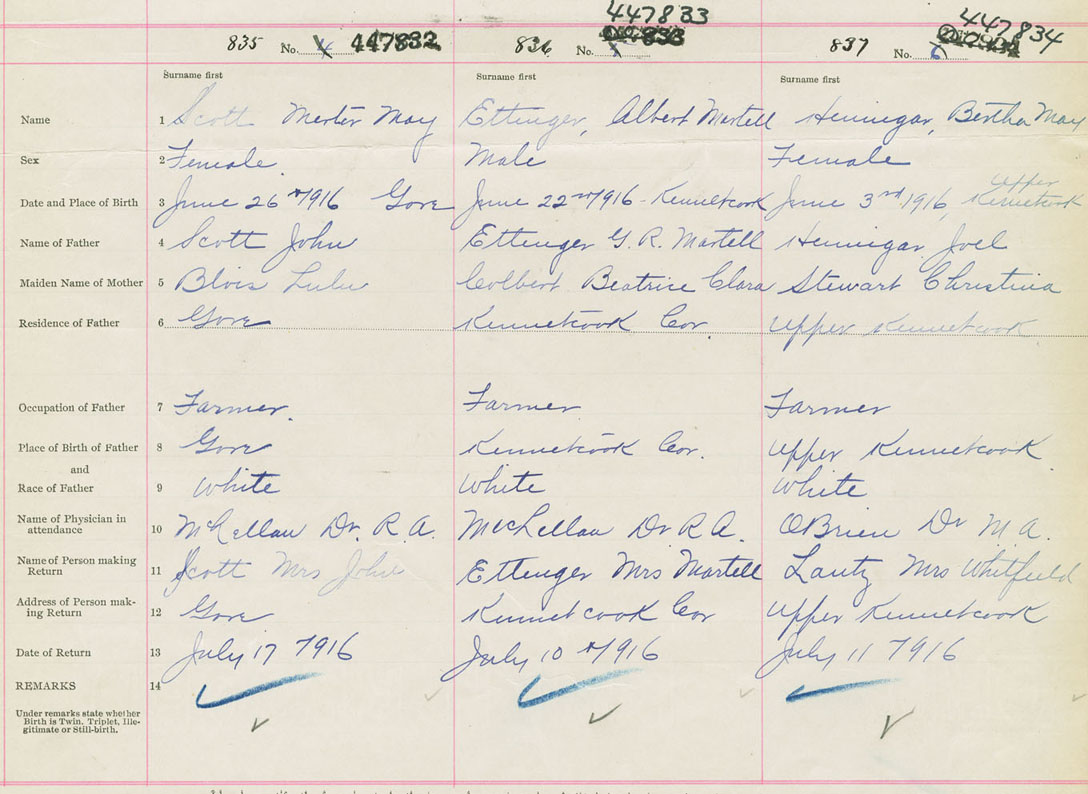 447833 447834
835 No. 4 447832 836 No. 837 No. 6
Surname first Surname first Surname first
Name 1 Scott Merter May Ettinger, Albert Martell Hennigar, Bertha May
Sex 2 Female. Male Female
Upper
Date and Place of Birth 3 June 26th 1916 Gore June 22nd 1916 - Kennetcook June 3rd 1916, Kennetcook
Name of Father 4 Scott John Ettinger G. R. Martell Hennigar Joel
Maiden Name of Mother 5 Blois Lulu Colbert Beatrice Clara Stewart Christina
Residence of Father 6 Gore Kennetcook Cor. Upper Kennetcook.
Occupation of Father 7 Farmer. Farmer Farmer
Place of Birth of Father 8 Gore Kennetcook Cor. Upper Kennetcook
and
Race of Father 9 White White White
Name of Physician in
attendance 10 McLellan Dr. R. A. McLellan Dr R A. O'Brien Dr M A.
Name of Person making
Return 11 Scott Mrs John Ettinger Mrs Martell Lantz Mrs Whitfield
Address of Person mak-
ing Return 12 Gore Kennetcook Cor Upper Kennetcook
Date of Return 13 July 17 1916 July 10th 1916 July 11 1916
REMARKS 14
Under remarks state whether
Birth is Twin. Triplet, Ille-
gitimate or Still-birth.